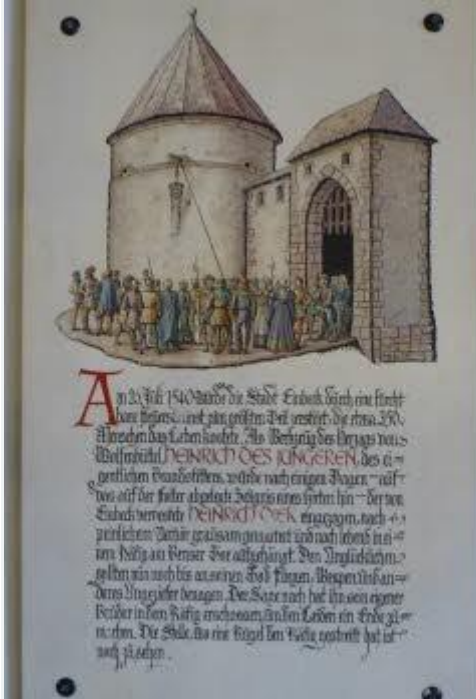 Am 26. Juli 1540 wurde die Stadt Einbeck durch eine furcht-
bare Feuersbrunst zum größten Teil zerstört, die etwa 350
Menschen das Leben kostete. Als Werkzeug des Herzogs von
Wolfenbüttel HEINRICH DES JÜNGEREN, des ei-
gentlichen Brandstifters, wurde nach einigen Tagen – auf-
das auf der Folter abgelegte Zeugnis eines Hirten hin – der von
Einbeck verfestete HEINRICH DIEK eingezogen, nach
peinlichem Verhör grausam gemartert und noch lebend in ei-
nem Käfig am Tor aufgehängt. Den Unglücklichen
sollten nun noch bis an seinen Tod Fliegen, Wespen und an-
deres Ungeziefer benagen. Der Sage nach hat ihn sein eigener
Bruder in dem Käfig erschossen, um den Leiden ein Ende zu
machen. Die Stelle, wo eine Kugel den Käfig gestreift hat ist
noch zu sehen.